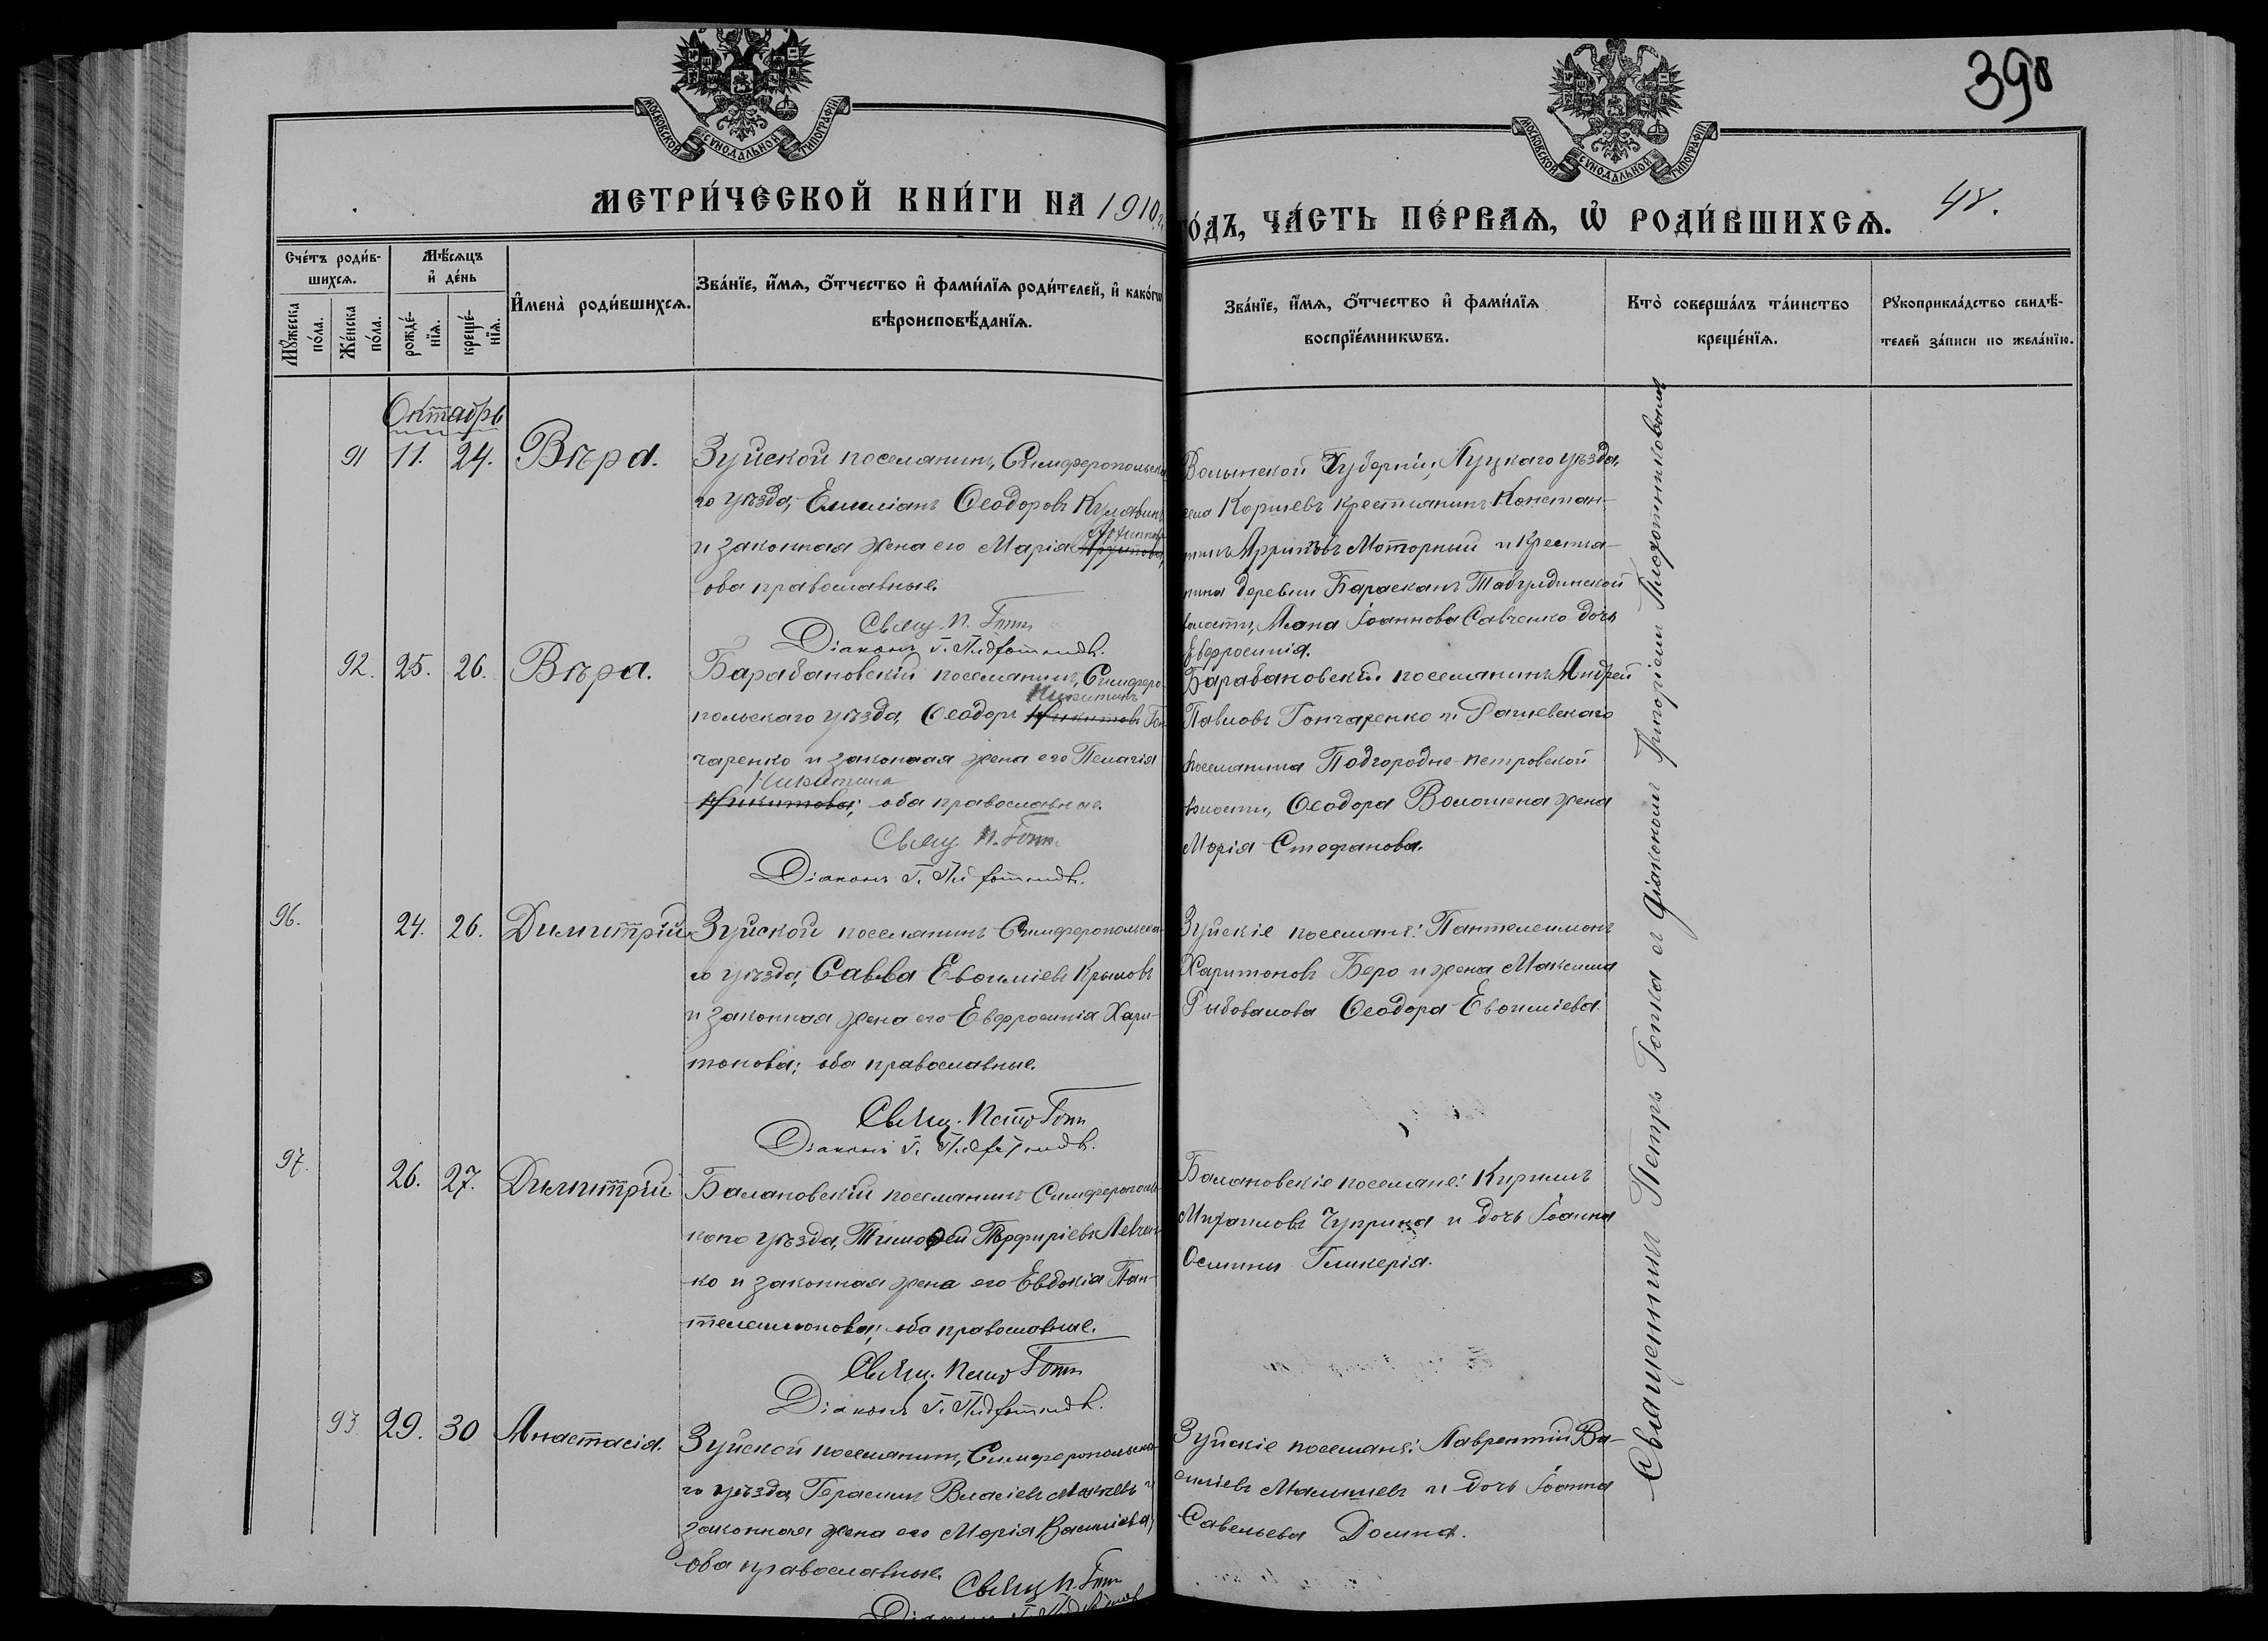 398
МОСКОВСКОЙ СѴНОДАЛЬНОЙ ТИПОГРАФІИ
МОСКОВСКОЙ СѴНОДАЛЬНОЙ ТИПОГРАФІИ
МЕТРИ́ЧЕСКОЙ КНИ́ГИ НА 1910 г.
ГО́ДЪ, ЧА́СТЬ ПЕ́РВАѦ, Ѡ҆ РОДИ́ВШИХСѦ.
48.
Сче́тъ роди́в-
шихсѧ.
Мѣ́сѧцъ
и҆ де́нь
Мꙋ́жеска
по́ла.
Же́нска
по́ла.
рожде́-
нїѧ.
креще́-
нїѧ.
И҆мена̀ роди́вшихсѧ.
Зва́нїе, и҆́мѧ, ѻ҆́тчество и҆ фами́лїѧ роди́телей, и҆ како́гѡ
вѣроисповѣ́данїѧ.
Зва́нїе, и҆́мѧ, ѻ҆́тчество и҆ фами́лїѧ
воспрїе́мникѡвъ.
Кто̀ соверша́лъ та́инство
креще́нїѧ.
Рꙋкоприкла́дство свидѣ́-
телей за́писи по жела́нїю.
Октябрь
91 11. 24. Вѣра.
Зуйской поселянинъ, Симферопольска-
го уѣзда, Емиліанъ Ѳеодоровъ
и законная жена его Марія
оба православные.
Свящ. П.
Діаконъ Г.
Волынской Губерніи, Луцкаго уѣзда,
села Коршевъ крестьянинъ Констан-
тинъ Моторный и крестья-
нина деревни Бараеканъ Табулдинской
волости, Іоаннова Савченко дочь
Евфросинія.
92. 25. 26. Вѣра.
Барабановскій поселянинъ, Симферо-
Никитинъ
польскаго уѣзда, Ѳеодоръ Никитовъ Гон-
чаренко и законная жена его Пелагія
Никитина
Никитова; оба православные.
Свящ. П.
Діаконъ Г.
Барабановскій поселянинъ Андрей
Павловъ Гончаренко и
поселянина Подгородне-Петровской
волости, Ѳеодора Волошена жена
Марія Стефанова.
96. 24. 26. Димитрій.
Зуйской поселянинъ Симферопольска-
го уѣзда, Савва Евѳиміевъ Крыловъ
и законная жена его Евфросинія Хари-
тонова; оба православные.
Свящ. Петръ
Діаконъ Г.
Зуйскіе поселяне: Пантелеимонъ
Харитоновъ Беро и жена Максима
Рыбовалова Ѳеодора Евѳиміева.
97. 26. 27. Димитрій.
Балановскій поселянинъ Симферополь-
скаго уѣзда, Тимоѳей Порфиріевъ Левчен-
ко и законная жена его Евдокія Пан-
телеимонова; оба православные.
Свящ. Петръ
Діаконъ Г.
Балановскіе поселяне: Кириллъ
Михаиловъ Чуприна и дочь Іоанна
Осмины Гликерія.
93 29. 30 Анастасія.
Зуйской поселянинъ, Симферопольска-
го уѣзда, Герасимъ Власіевъ и
законная жена его Марія Василіева;
оба православные.
Свящ П.
Зуйскіе поселяне: Лаврентій Ва-
силіевъ и дочь Іоанна
Савельева Домна.
Священникъ Петръ съ діакономъ Григоріемъ